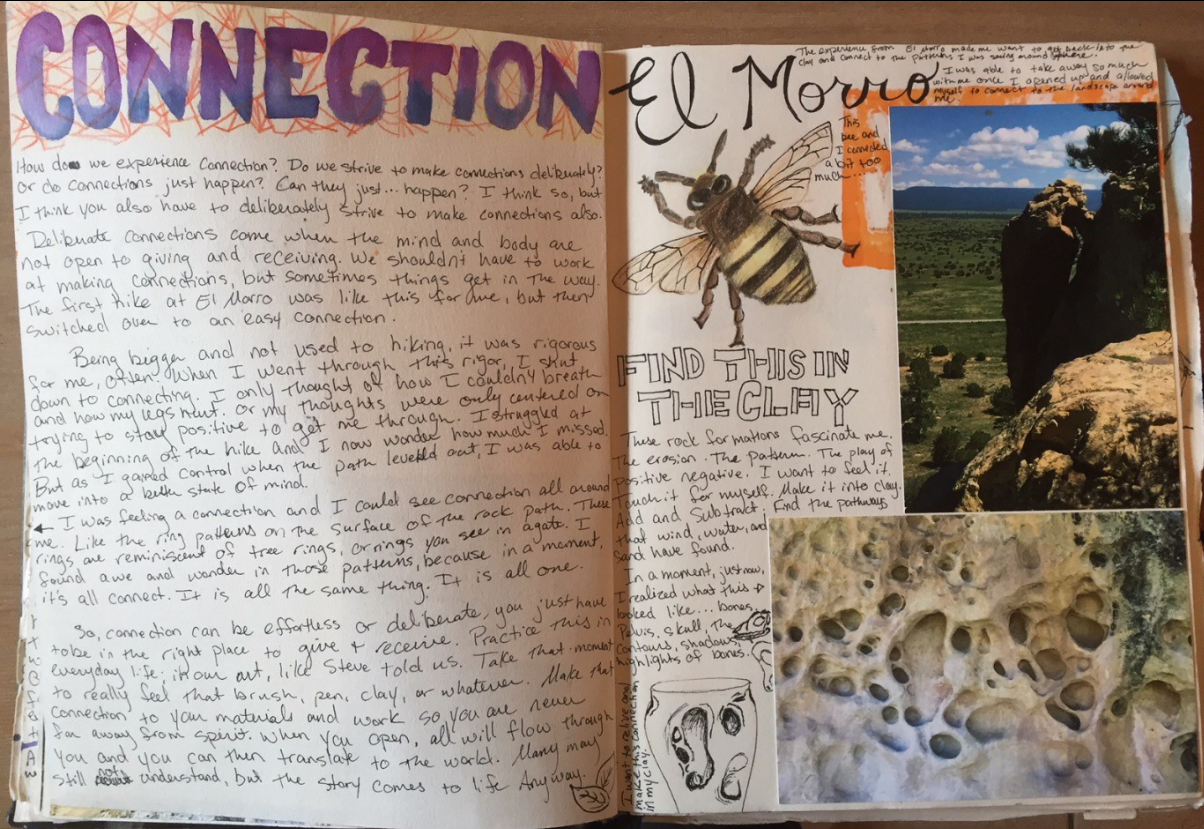 CONNECTION
How do we experience connection? Do we strive to make connections deliberately?
Or do connections just happen? Can they just... happen? I think so, but
I think you also have to deliberately strive to make connections also.
Deliberate connections come when the mind and body are
not open to giving and receiving. We shouldn't have to work
at making connections, but sometimes things get in the way.
The first hike at El Morro was like this for me, but then
switched over to an easy connection.
Being bigger and not used to hiking, it was rigorous
for me, often. When I went through this rigor, I shut
down to connecting. I only thought of how I couldn't breath
and how my legs hurt. Or my thoughts were only centered on
trying to stay positive to get me through. I struggled at
the beginning of the hike and I now wonder how much I missed.
But as I gained control when the path leveled out, I was able to
move into a better state of mind.
← I was feeling a connection and I could see connection all around
me. Like the ring patterns on the surface of the rock path. These
rings are reminiscent of tree rings, or rings you see in agate. I
found awe and wonder in those patterns, because in a moment,
it's all connect. It is all the same thing. It is all one.
So, connection can be effortless or deliberate, you just have
to be in the right place to give + receive. Practice this in
everyday life, in our art, like Steve told us. Take that moment
to really feel that brush, pen, clay, or whatever. Make that
connection to your materials and work so you are never
far away from spirit. When you open, all will flow through
you and you can then translate to the world. Many may
still not understand, but the story comes to life Anyway.
El Morro
The experience from El Morro made me want to get back into the
clay and connect to the patterns I was seeing around there.
I was able to take away so much
with me once I opened up and allowed
myself to connect to the landscape around
me.
This
bee and
I connected
a bit too
much...
FIND THIS IN
THE CLAY
These rock formations fascinate me.
The erosion. The pattern. The play of
positive negative. I want to feel it.
Touch it for myself. Make it into clay.
Add and Subtract. Find the pathways
that wind, water, and
sand have found.
In a moment, just now,
I realized what this
looked like... bones.
Pelvis. skull. The
contours, shadows,
highlights of bones.
I want to relive and
make this connection
in my clay.